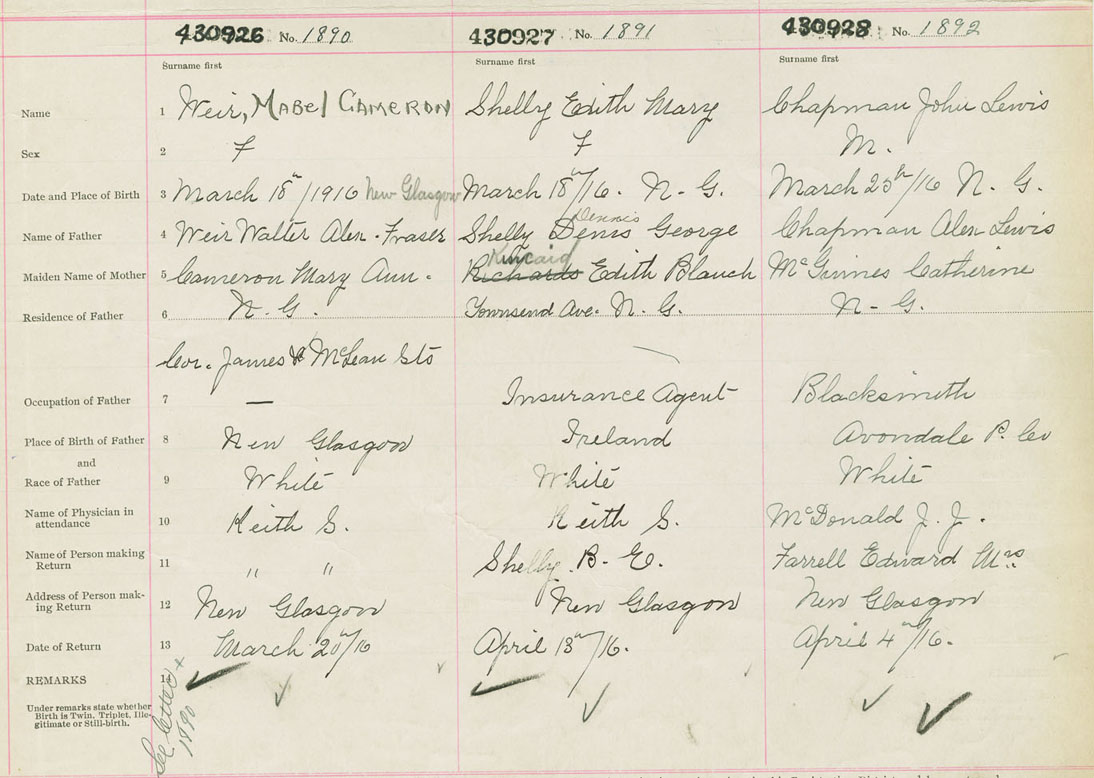 430926 No. 1890 430927 No. 1891 430928 No. 1892
Surname first Surname first Surname first
Name 1 Weir, Mabel Cameron Shelly Edith Mary Chapman John Lewis
Sex 2 F F M.
Date and Place of Birth 3 March 18th/1916 New Glasgow March 18th/16. N. G. March 25th/16 N. G.
Dennis
Name of Father 4 Weir Walter Alex. Fraser Shelly Denis George Chapman Alex Lewis
Kincaid
Maiden Name of Mother 5 Cameron Mary Ann. Richards Edith Blanch McGuines Catherine
Residence of Father 6 N. G. Townsend Ave. N. G. N - G.
Cor. James & McLean Sts
Occupation of Father 7 — Insurance Agent Blacksmith
Place of Birth of Father 8 New Glasgow Ireland Avondale P. Co
and
Race of Father 9 White White White
Name of Physician in
attendance 10 Keith S. Keith S. McDonald J. J.
Name of Person making
Return 11 " " Shelly B. E. Farrell Edward Mrs
Address of Person mak-
ing Return 12 New Glasgow New Glasgow New Glasgow
Date of Return 13 March 20th/16 April 13th/16. April 4th/16.
REMARKS 14
Under remarks state whether
Birth is Twin, Triplet, Ille-
gitimate or Still-birth.
See letter
1890